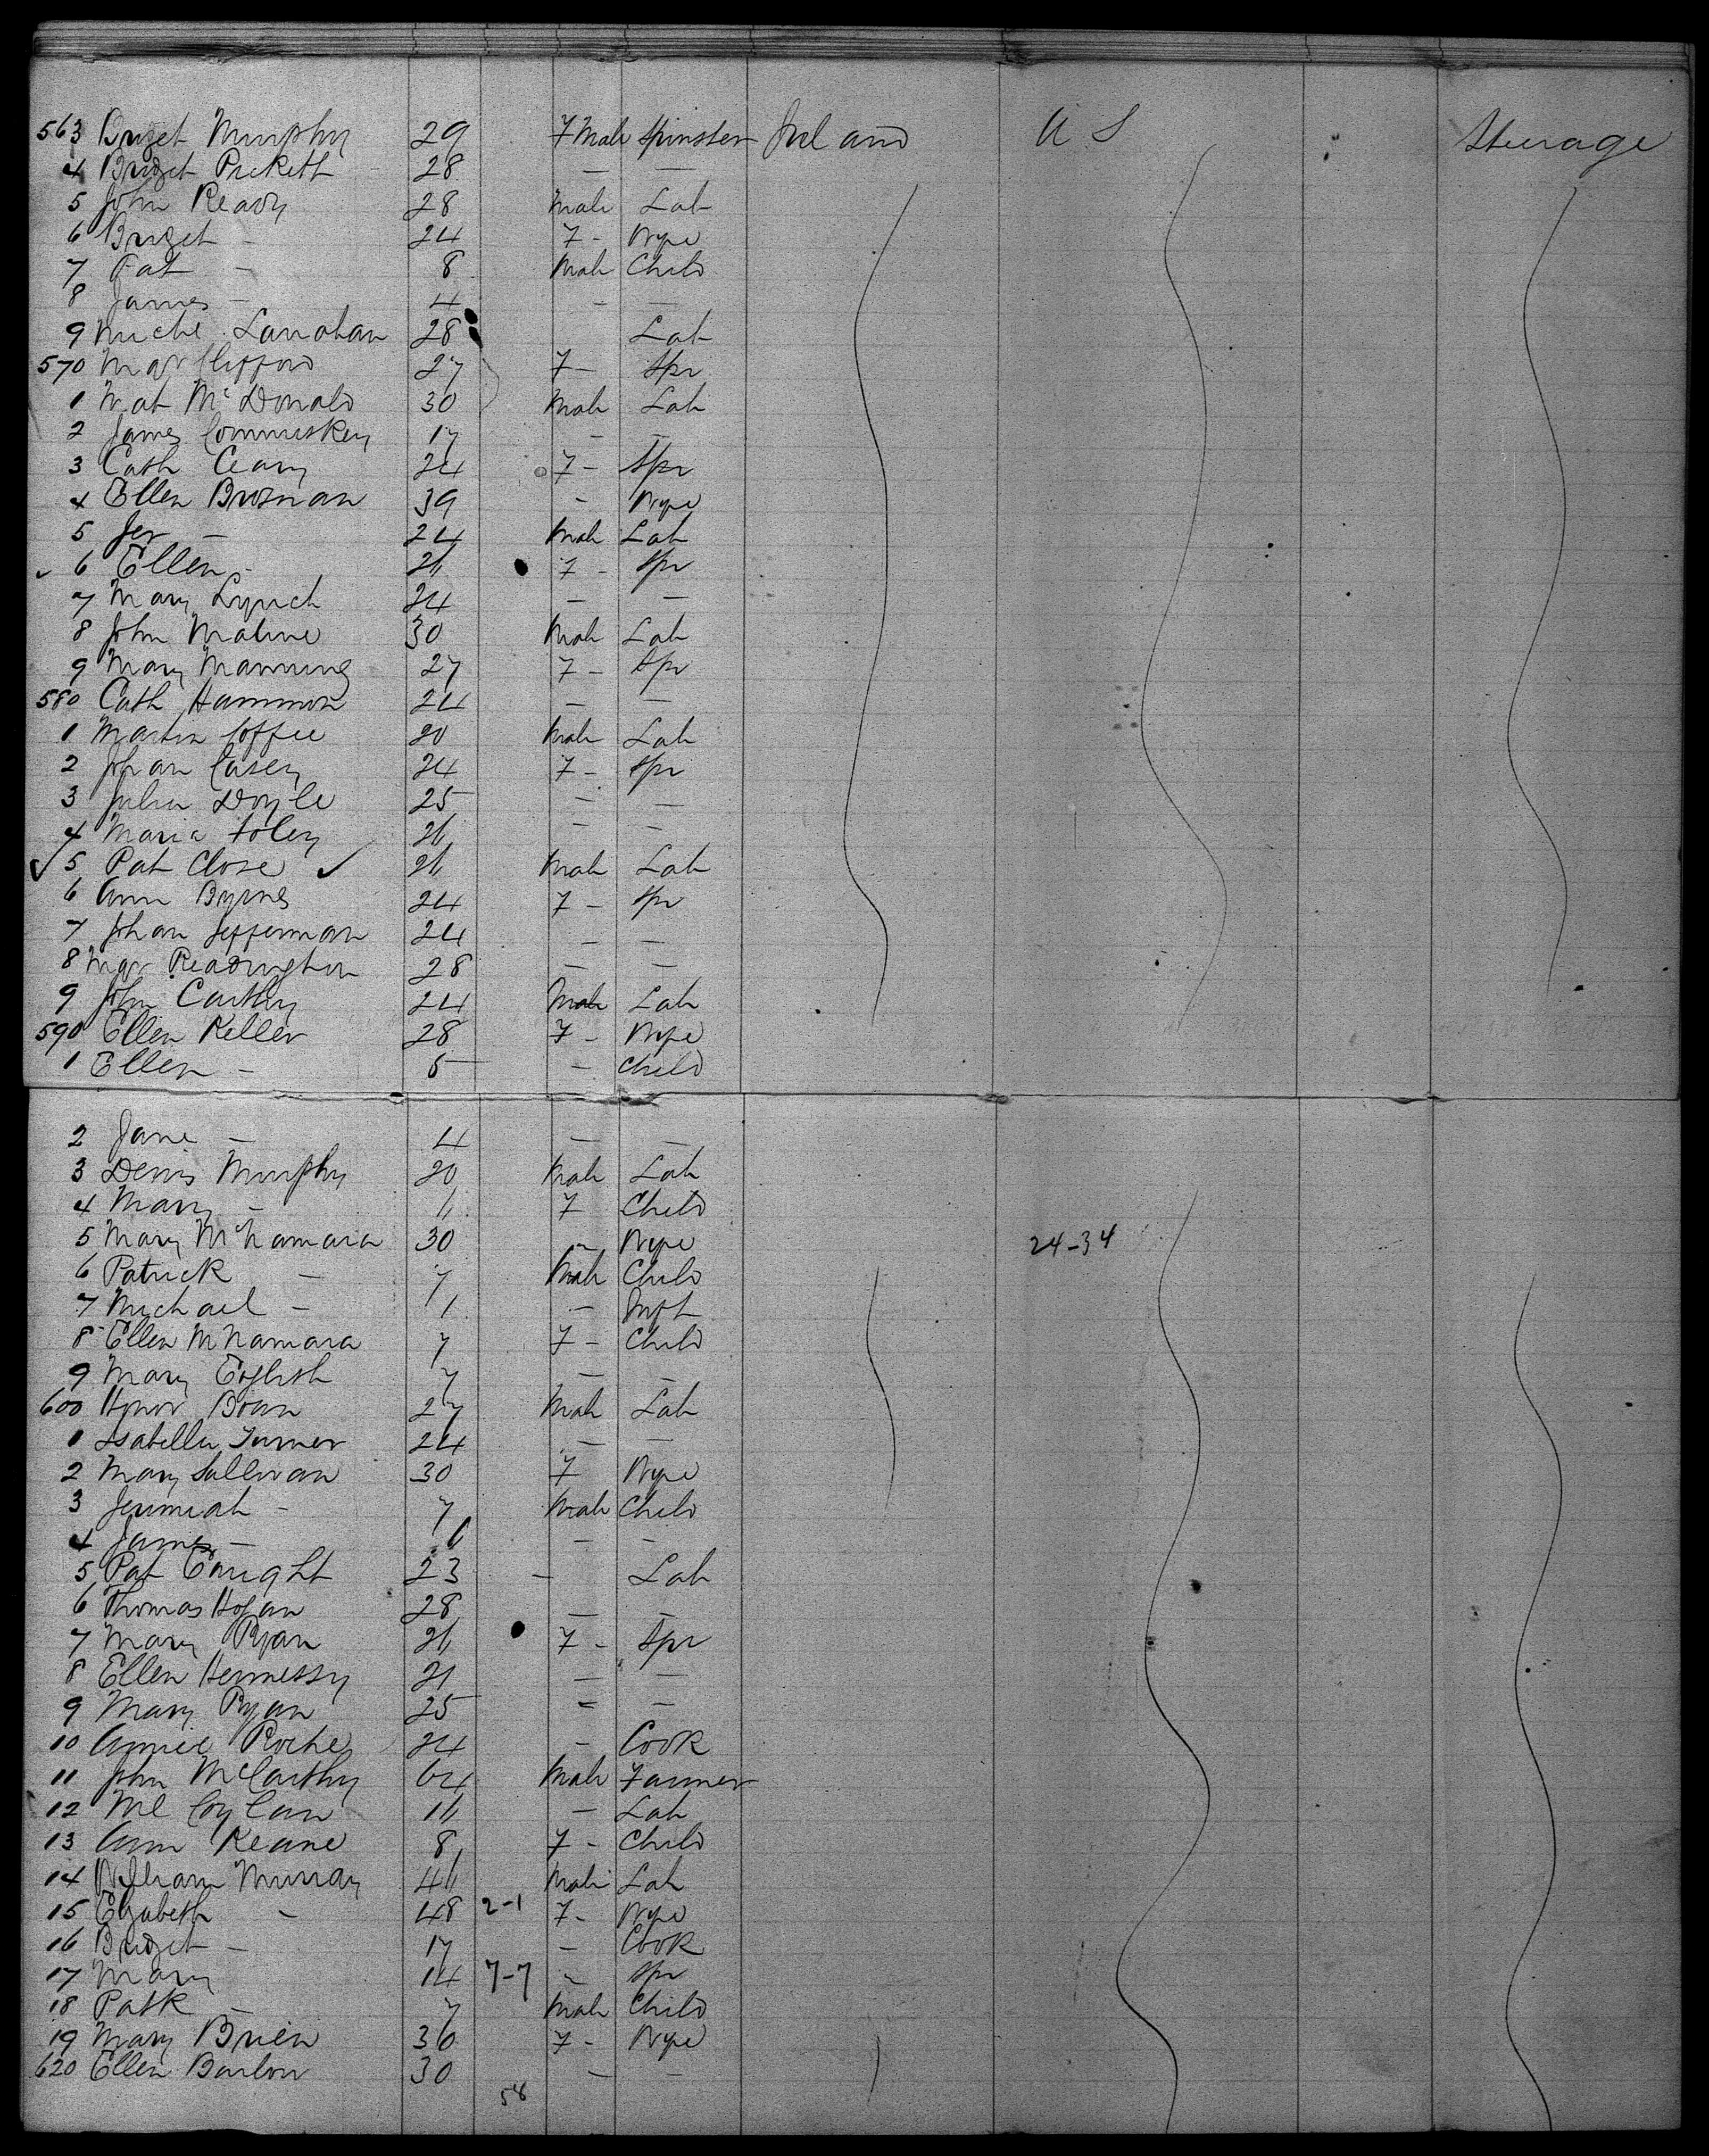 563 Bridget Murphy 29 Female Spinster Ireland U S Steerage
4 Bridget Pickett 28 — —
5 John Ready 28 Male Lab
6 Bridget - 24 F - Wife
7 Pat - 8 Male Child
8 James - 4 - —
9 Michl Lanahan 28 Lab
570 Mar Clifford 27 F - Spr
1 Mat McDonald 30 Male Lab
2 James Commiskey 17 - —
3 Cath Ceary 24 F - Spr
4 Ellen Brosnan 39 - Wife
5 Jer — 24 Male Lab
6 Ellen - 26 F - Spr
7 Mary Lynch 24 — —
8 John Malone 30 Male Lab
9 Mary Manning 27 F - Spr
580 Cath Hammon 24 — —
1 Martin Coffee 20 Male Lab
2 Johan Casey 24 F - Spr
3 Julia Doyle 25 — —
4 Maria Foley 26 — -
✓ 5 Pat Close ✓ 26 Male Lab
6 Ann Byrnes 24 F - Spr
7 Johan Hefferman 24 — —
8 Mar Readington 28 — —
9 John Carthy 24 Male Lab
590 Ellen Keller 28 F - Wife
1 Ellen - 5 - Child
2 Jane - 4 — —
3 Denis Murphy 20 Male Lab
4 Mary - F Child
5 Mary McNamara 30 - Wife 24-34
6 Patrick — 7 Male Child
7 Michael - 1 - Inft
8 Ellen McNamara 7 F - Child
9 Mary English 7 — -
600 Honor 27 Male Lab
1 Isabella Turner 24 — —
2 Mary Sullivan 30 F Wife
3 Jeremiah - 7 Male Child
4 James - 6 — -
5 Pat Enright 23 — Lab
6 Thomas Hogan 28 — -
7 Mary Ryan 26 F - Spr
8 Ellen Hennessy 21 — —
9 Mary Ryan 25 = —
10 Annie Roche 24 - Cook
11 John McCarthy 64 Male Farmer
12 Ml Coylan 16 — Lab
13 Ann Keane 8 F - Child
14 William Murray 46 Male Lab
15 Elizabeth - 48 2-1 F - Wife
16 Bridget - 17 - Cook
17 Mary 14 7-7 - Spr
18 Patk — 7 Male Child
19 Mary Brien 36 F - Wife
620 Ellen Barlow 30 — —
58